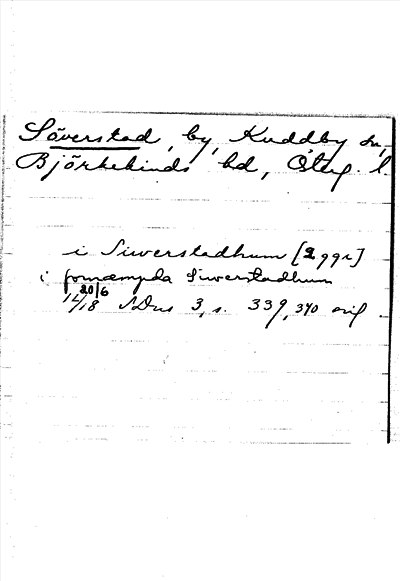 Söverstad, by, Kuddby sn,
Björkekinds hd, Östergl. l.
i Siwerstadhum [2 ggr]
i fornæmpda Siwerstadhum
20/6
14/18 SDns 3, s. 339, 340 orig.